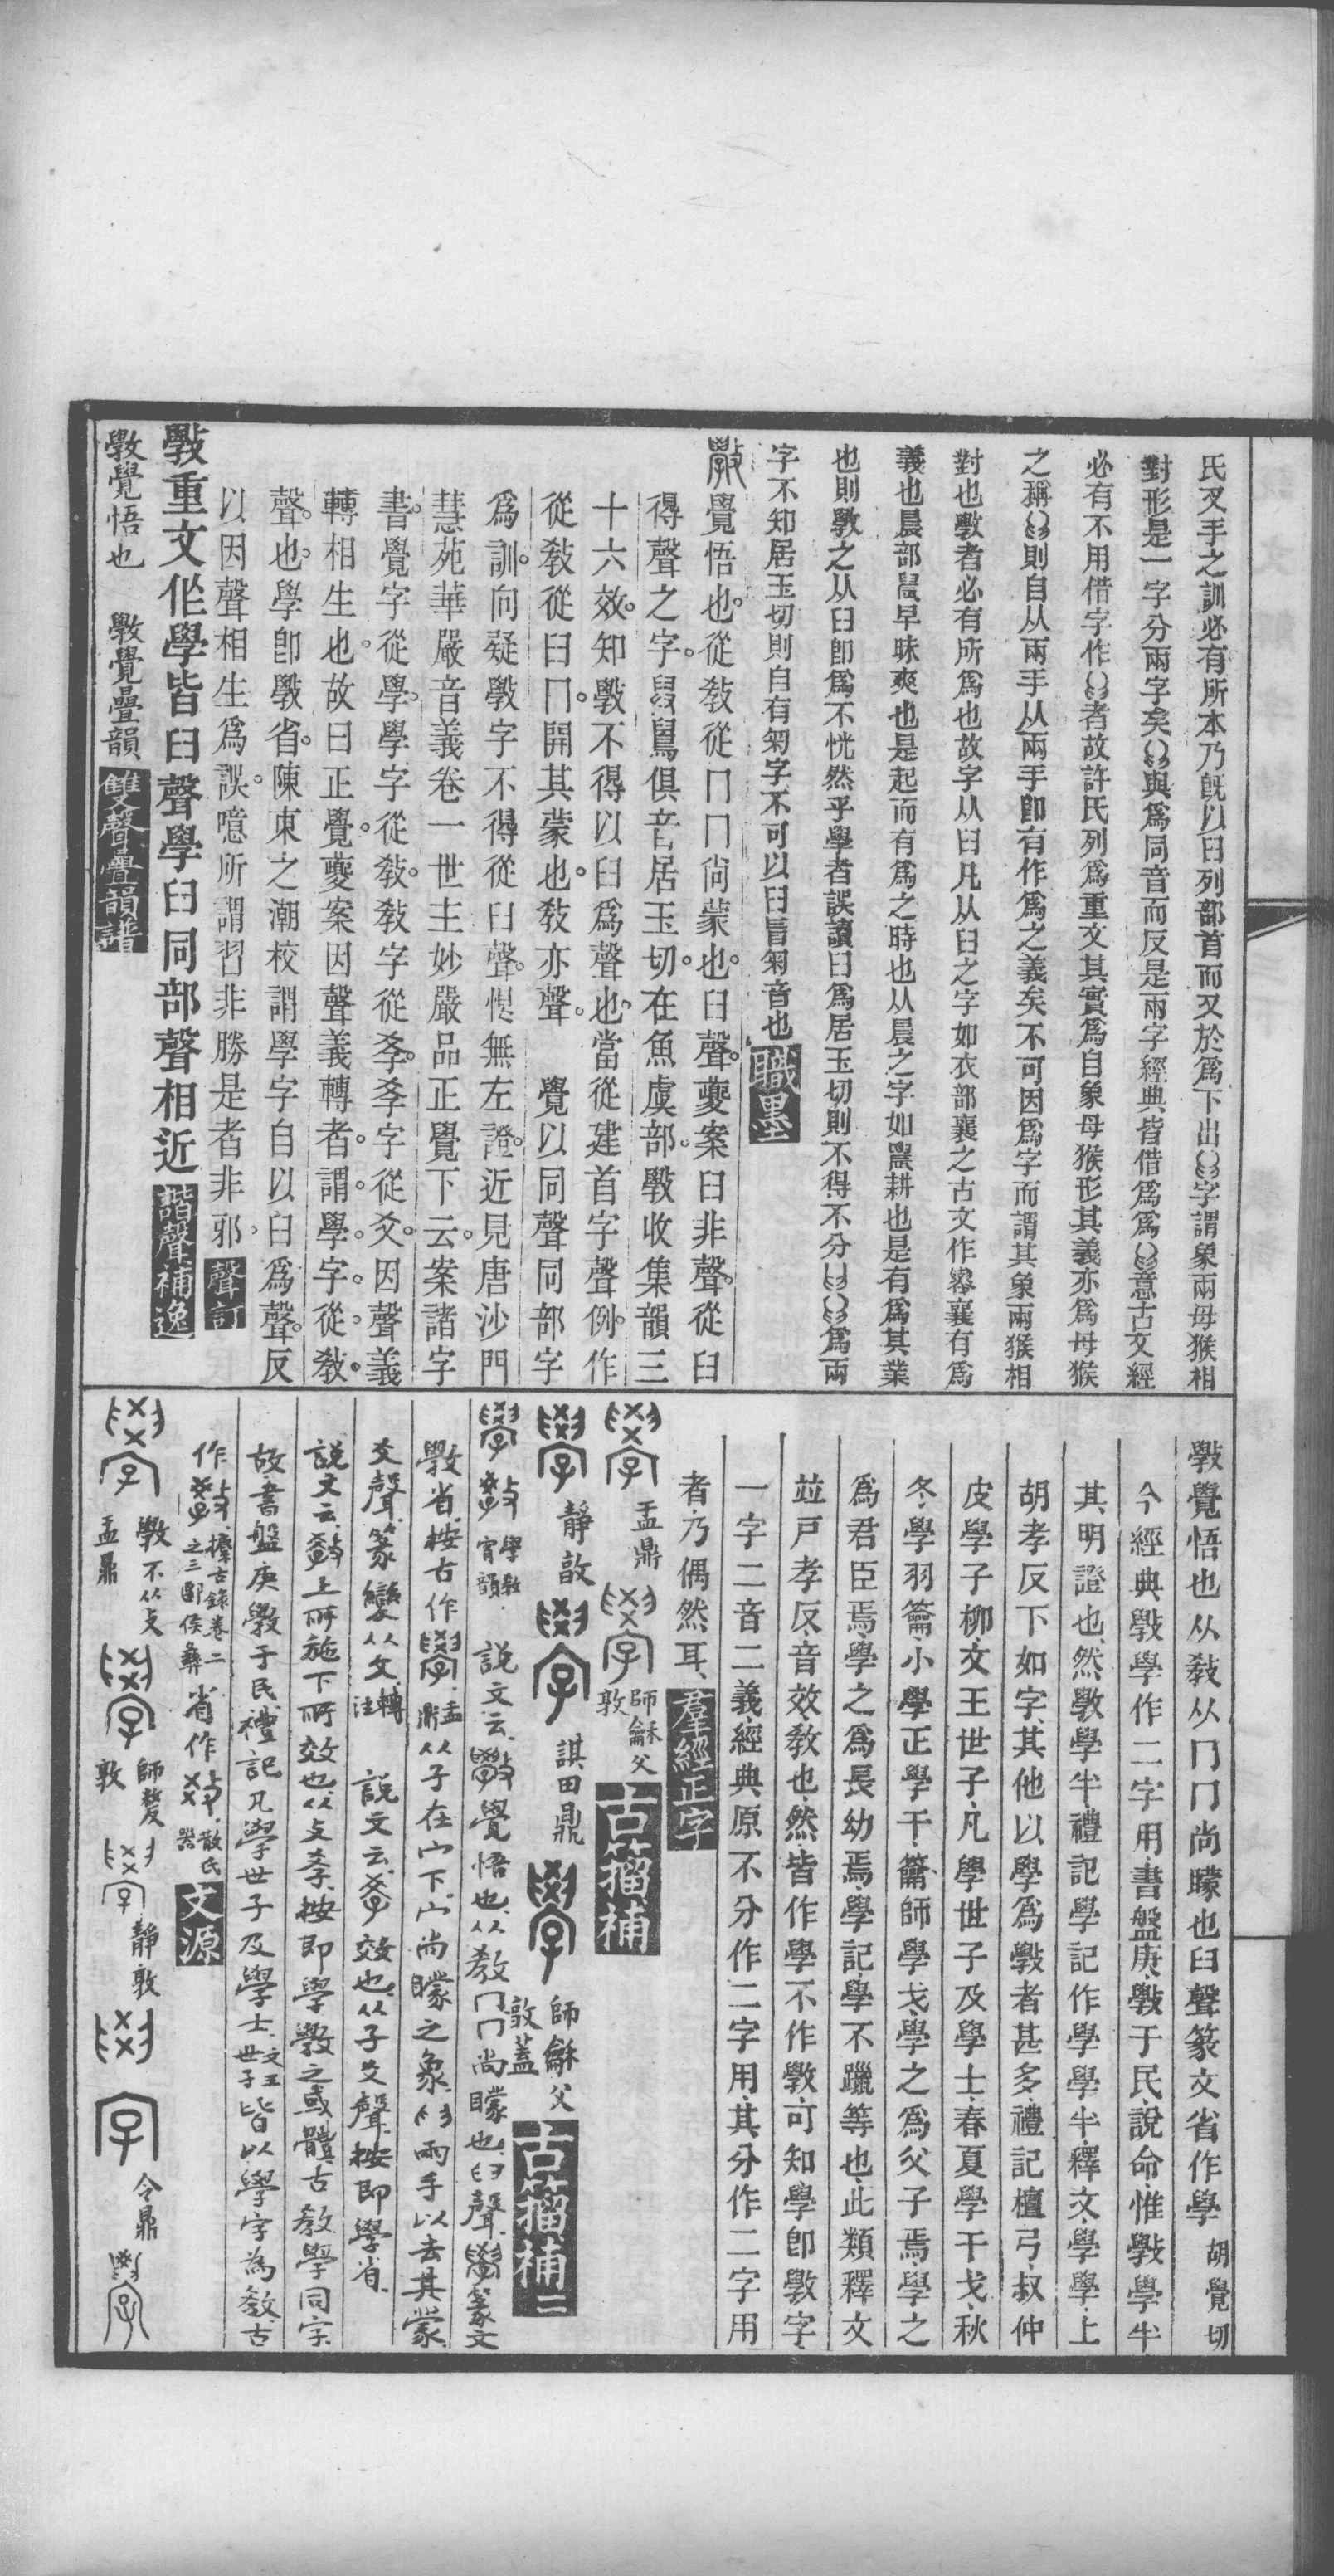 氏㕚手之訓必有所本乃旣以𦥑列部首而又於爲下出字謂象兩母猴相
對形是一字分兩字矣與爲同音而反是兩字經典皆借爲爲意古文經
必有不用借字作者故許氏列爲重文其實爲自象母猴形其義亦爲母猴
之稱則自从兩手从兩手卽有作爲之義矣不可因爲字而謂其象兩猴相
對也斆者必有所爲也故字从𦥑凡从𦥑之字如衣部襄之古文作襄有爲
義也晨部早昧爽也是起而有爲之時也从晨之字如耕也是有爲其業
也則斆之从𦥑卽爲不恍然乎學者誤讀𦥑爲居玉切則不得不分爲兩
字不知居玉切則自有匊字不可以𦥑爲匊音也職墨
斆覺悟也從敎從冂冂尙蒙也𦥑聲夔案𦥑非聲從𦥑
得聲之字俱音居玉切在魚虞部斆收集韻三
十六效知斆不得以𦥑爲聲也當從建首字聲例作
從敎從𦥑冂開其蒙也敎亦聲　覺以同聲同部字
爲訓向疑斆字不得從𦥑聲惜無左證近見唐沙門
慧苑華嚴音義卷一世主妙嚴品正覺下云案諸字
書覺字從學學字從敎敎字從孝孝字從爻因聲義
轉相生也故曰正覺夔案因聲義轉者謂學字從敎
聲也學卽斆省陳東之潮校謂學字自以𦥑爲聲反
以因聲相生爲誤噫所謂習非勝是者非邪聲訂
斆重文作學皆𦥑聲學𦥑同部聲相近諧聲補逸
斆覺悟也　斆覺疊韻雙聲疊韻譜
斆覺悟也从敎从冂冂尚矇也𦥑聲篆文省作學胡覺切
今經典斆學作二字用書盤庚斆于民說命惟斆學半
其明證也然斆學半禮記學記作學學半釋文學學上
胡孝反下如字其他以學爲斆者甚多禮記檀弓叔仲
皮學子柳文王世子凡學世子及學士春夏學干戈秋
冬學羽籥小學正學干籥師學戈學之爲父子焉學之
爲君臣焉學之爲長幼焉學記學不躐等也此類釋文
竝戸孝反音效敎也然皆作學不作斆可知學卽斆字
一字二音二義經典原不分作二字用其分作二字用
者乃偶然耳羣經正字
盂鼎　師龢父敦　古籀補
靜敦　諆田鼎　師龢父敦蓋　古籀補二
學斆學敎宵韻　說文云斆覺悟也从敎冂冂尚矇也𦥑聲學篆文
斆省按古作學盂鼎从子在冖下冖尚矇之象兩手以去其蒙
爻聲篆變从攵轉注　說文云孝效也从子爻聲按即學省
說文云敎上所施下所效也从攴孝按即學斆之或體古敎學同字
故書盤庚斆于民禮記凡學世子及學士文王世子皆以學字為敎古
作攈古錄卷二之三郾侯彝省作散氏器文源
斆不从攴盂鼎　師𠩺敦　靜敦　令鼎